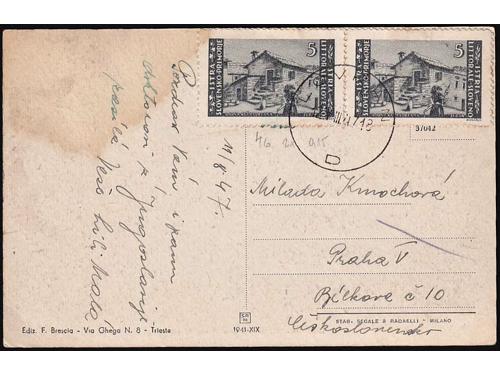 5
ISTRA
SLOVENSKO PRIMORJE
ISTRIA
LITTORALE SLOVENO
5
ISTRA
SLOVENSKO PRIMORJE
ISTRIA
LITTORALE SLOVENO
D
37042
11/8 47.
Pozdrav Vám i panu
k Jugoslavije
Vaše Lili Malá
Milada Kmochová
Praha V
Bílkova č 10
Československo
Ediz. F. Brescia - Via Ghega N. 8 - Trieste
1941-XIX
STAB. SEGALE & RADAELLI - MILANO